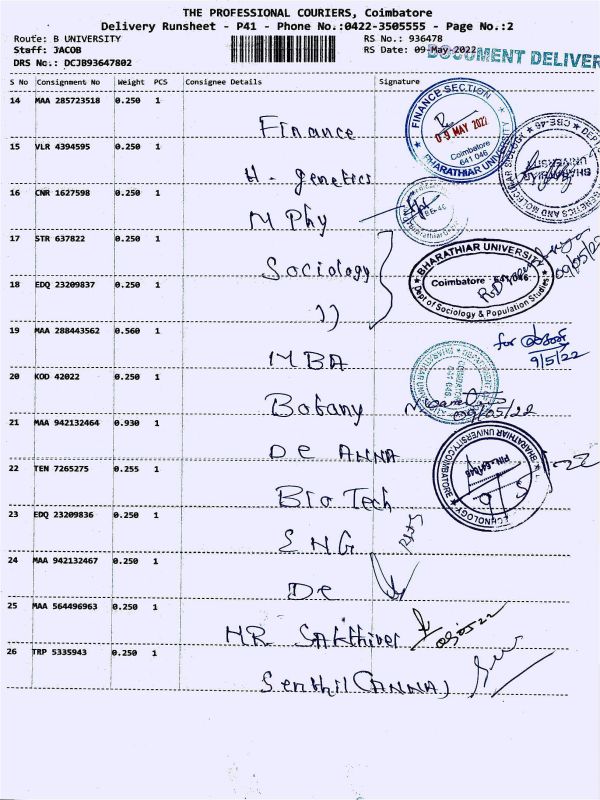 THE PROFESSIONAL COURIERS, Coimbatore
Delivery Runsheet - P41 - Phone No.:0422-3505555 - Page No.:2
Route: B UNIVERSITY
RS No.: 936478
Staff: JACOB
RS Date: 09-May-2022
DOCUMENT DELIVER
DRS No.: DCJB93647802
S No Consignment No Weight PCS Consignee Details Signature
14 MAA 285723518 0.250 1
Finance
FINANCE SECTION
09 MAY 2022
Coimbatore
641 046
BHARATHIAR UNIVERSITY
15 VLR 4394595 0.250 1
H. genetics
16 CNR 1627598 0.250 1
M Phy
17 STR 637822 0.250 1
Sociology
BHARATHIAR UNIVERSITY
Coimbatore
Dept of Sociology & Population Studies
09/05/22
18 EDQ 23209837 0.250 1
))
19 MAA 288443562 0.560 1
MBA
for
9/5/22
20 KOD 42022 0.250 1
Botany
09/05/22
21 MAA 942132464 0.930 1
De ANNA
22 TEN 7265275 0.255 1
Bio Tech
23 EDQ 23209836 0.250 1
ENG
24 MAA 942132467 0.250 1
De
25 MAA 564496963 0.250 1
HR Sakthivel
26 TRP 5335943 0.250 1
Senthil (ANNA)